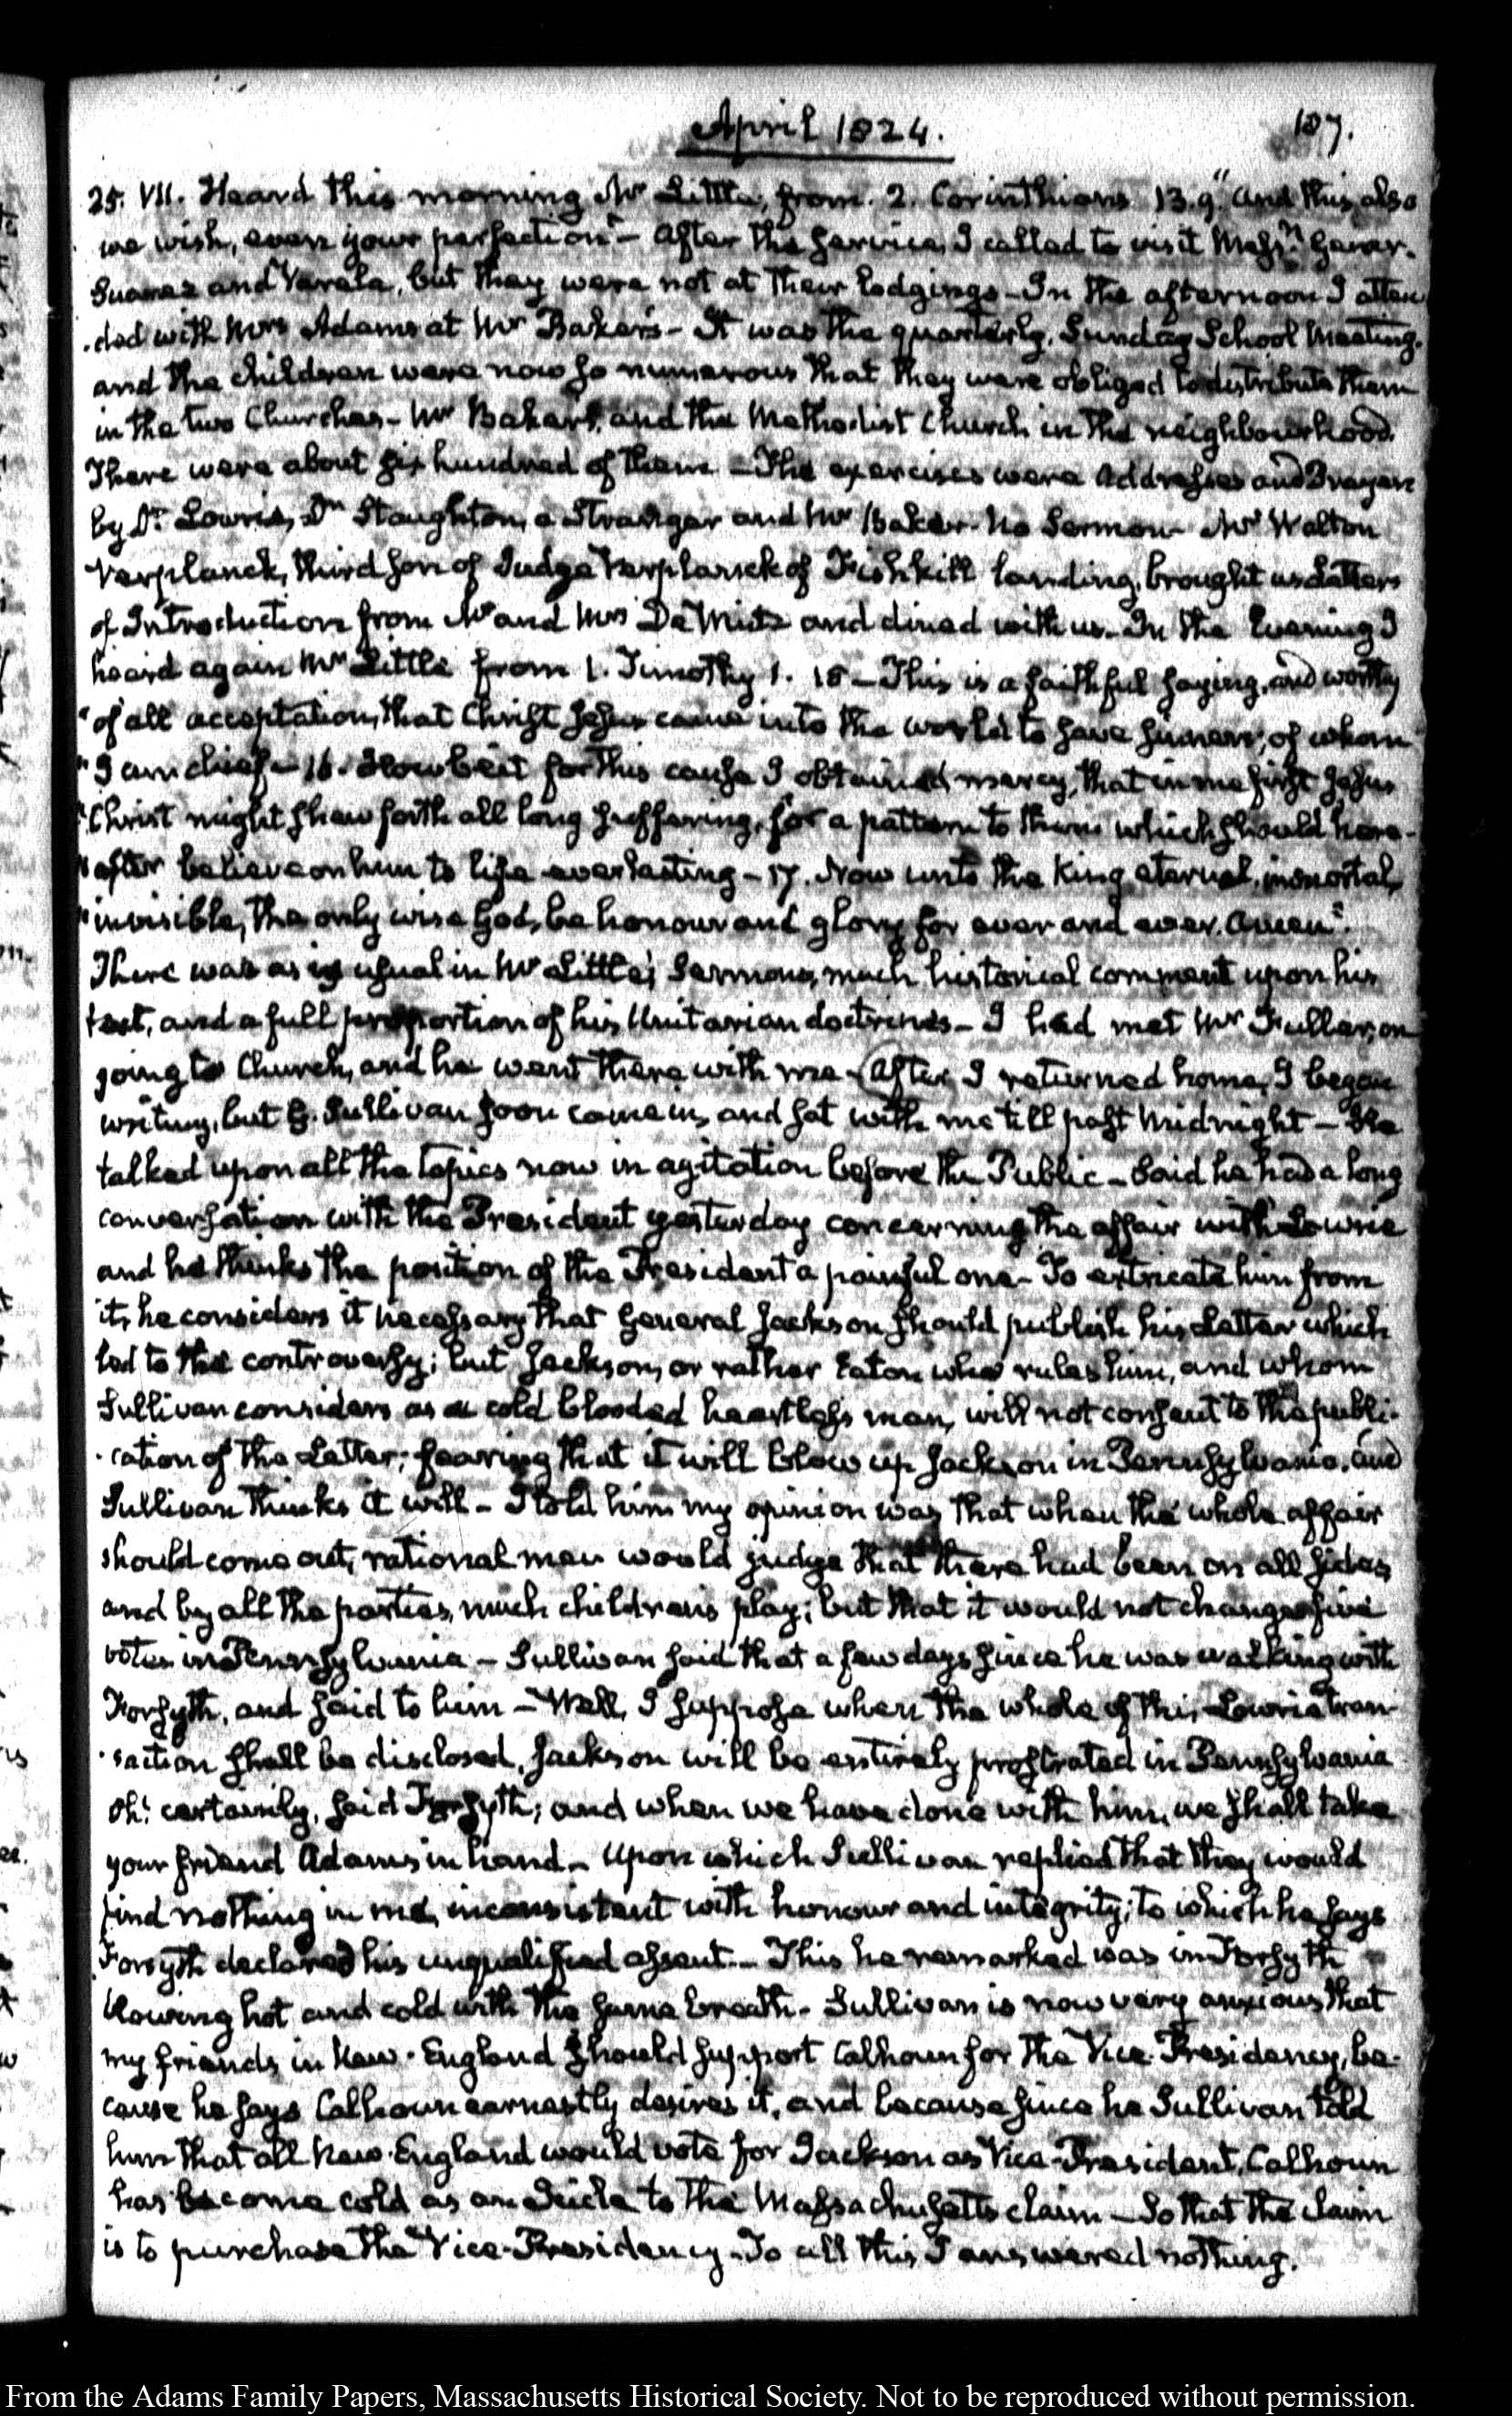 April 1824.
107.
25. VII. Heard this morning Mr Little, from. 2. Corinthians 13.9. "And this, also
we wish, even your perfection"- After the service, I called to visit Messrs
Suarez and Varela, but they were not at their lodgings- In the afternoon I atten-
-ded with Mrs Adams at Mr Baker's- It was the quarterly, Sunday School Meeting.
and the children were now so numerous that they were obliged to distribute them
in the two Churches- Mr Baker's, and the Methodist Church in the neighbourhood.
There were about six hundred of them -The exercises were Addresses and Prayers
by Dr Lowrie, Dr Staughton, a Stranger and Mr Baker- No Sermon- Mr Walton
Verplanck, third son of Judge Verplanck of Fishkill landing, brought us Letters
of Introduction from Mr and Mrs De Wint and dined with us- In the Evening I
heard again Mr Little from 1. Timothy 1. 15 -This is a faithful saying, and worthy
"of all acceptation, that Christ Jesus came into the world to save sinners, of whom
"I am chief- 16. Howbeit for this cause I obtained mercy, that in me first Jesus
"Christ might shew forth all long suffering, for a pattern to them which should here-
"after believe on him to life everlasting - 17. Now unto the King eternal, immortal,
"invisible, the only wise God, be honour and glory for ever and ever. Amen".
There was as is usual in Mr Little's Sermons, much historical comment upon his
text, and a full proportion of his Unitarian doctrines- I had met Mr Fuller, on
going to Church, and he went there with me- After I returned home, I began
writing, but G. Sullivan soon came in, and sat with me till past Midnight - He
talked upon all the topics now in agitation before the Public- Said he had a long
conversation with the President yesterday concerning the affair with Lowrie
and he thinks the position of the President a painful one- To extricate him from
it, he considers it necessary that General Jackson should publish his Letter which
led to the controversy; but Jackson, or rather Eaton who rules him, and whom
Sullivan considers as a cold blooded heartless man, will not consent to the publi-
-cation of the Letter; fearing that it will blow up Jackson in Pennsylvania. and
Sullivan thinks it will- I told him my opinion was that when the whole affair
should come out, rational men would judge that there had been on all sides
and by all the parties, much children's play; but that it would not change five
votes in Pennsylvania - Sullivan said that a few days since he was walking with
Forsyth, and said to him - Well, I suppose when the whole of this Lowrie tran-
-saction shall be disclosed, Jackson will be entirely prostrated in Pennsylvania
Oh! certainly, said Forsyth; and when we have done with him, we shall take
your friend Adams in hand- Upon which Sullivan replied that they would
find nothing in me, inconsistent with honour and integrity; to which he says
Forsyth declared his unqualified assent- This he remarked was in Forsyth
blowing hot and cold with the same breath- Sullivan is now very anxious that
my friends in New-England should support Calhoun for the Vice-Presidency, be-
cause he says Calhoun earnestly desires it, and because since he Sullivan told
him that all New-England would vote for Jackson as Vice-President, Calhoun
has become cold as an Icicle to the Massachusetts claim -So that the claim
is to purchase the Vice-Presidency- To all this I answered nothing.
From the Adams Family Papers, Massachusetts Historical Society. Not to be reproduced without permission.